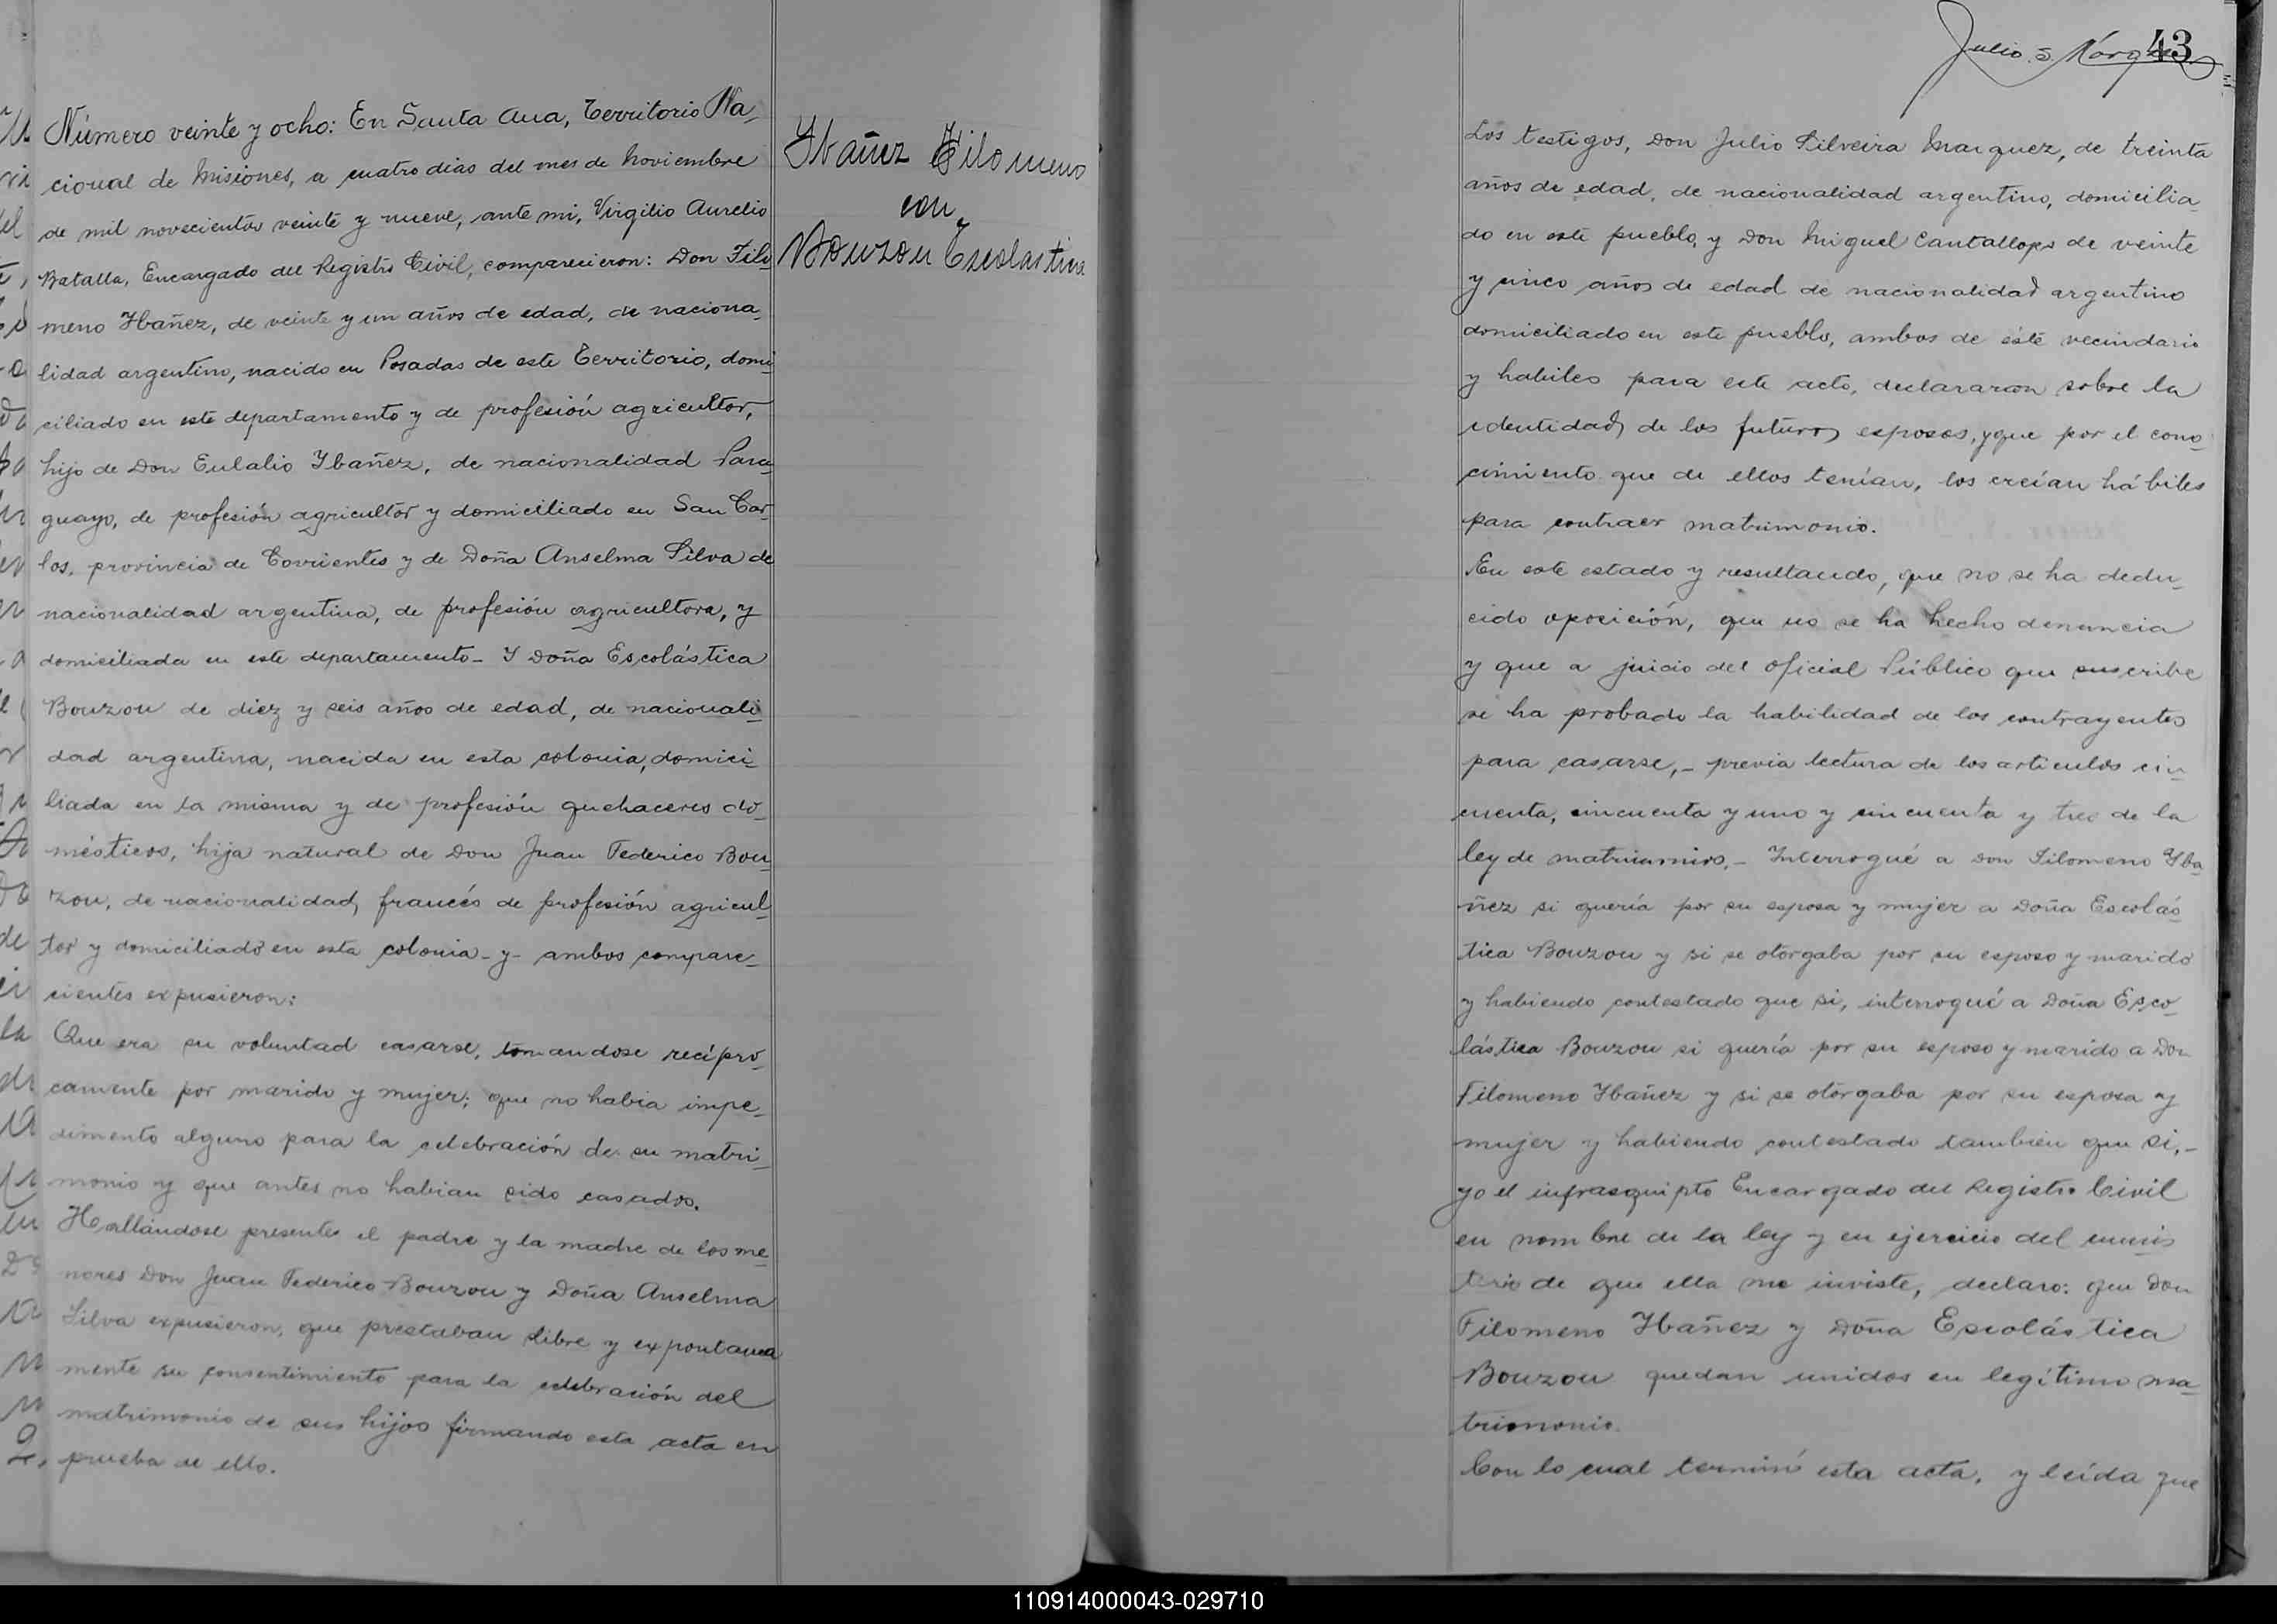 Número veinte y ocho: En Santa Ana, Territorio Na_
cional de Misiones, a cuatro dias del mes de Noviembre
de mil novecientos veinte y nueve, ante mi, Virgilio Aurelio
Batalla, Encargado del Registro Civil, comparecieron: Don Filo
meno Ibañez, de veinte y un años de edad, de naciona_
lidad argentino, nacido en Posadas de este Territorio, domi
ciliado en este departamento y de profesión agricultor,
hijo de Don Eulalio Ybañez, de nacionalidad Para
guayo, de profesión agricultor y domiciliado en San Car_
los, provincia de Corrientes y de Doña Anselma Silva de
nacionalidad argentina, de profesión agricultora, y
domiciliada en este departamento_ Y Doña Escolástica
Bouzou de diez y seis años de edad, de nacionali_
dad argentina, nacida en esta colonia, domici_
liada en la misma y de profesión quehaceres do_
mésticos, hija natural de Don Juan Federico Bou
zou, de nacionalidad francés de profesión agricul_
tor y domiciliado en esta colonia - y - ambos compare_
cientes expusieron:
Que era su voluntad casarse, tomandose recípro_
camente por marido y mujer; que no habia impe_
dimento alguno para la celebración de su matri_
monio y que antes no habian sido casados.
Hallándose presentes el padre y la madre de los me_
nores Don Juan Federico Bouzou y Doña Anselma
Silva expusieron, que prestaban libre y expontanea
mente su consentimiento para la celebración del
matrimonio de sus hijos firmando esta acta en
prueba de ello.
Ybañez Filomeno
con
Bouzou Escolastica
Julio S. Márquez
43
Los testigos, Don Julio Silveira Marquez, de treinta
años de edad, de nacionalidad argentino, domicilia_
do en este pueblo, y Don Miguel Cantallops de veinte
y cinco años de edad de nacionalidad argentino
domiciliado en este pueblo, ambos de éste vecindario
y habiles para este acto, declararon sobre la
identidad de los futuros esposos, y que por el cono_
cimiento que de ellos tenían, los creían hábiles
para contraer matrimonio.
En este estado y resultando, que no se ha dedu_
cido oposición, que no se ha hecho denuncia
y que a juicio del oficial Público que suscribe
se ha probado la habilidad de los contrayentes
para casarse,_ previa lectura de los articulos cin_
cuenta, cincuenta y uno y cincuenta y tres de la
ley de matrimonios._ Interrogué a Don Filomeno Yba_
ñez si quería por su esposa y mujer a Doña Escolás_
tica Bouzou y si se otorgaba por su esposo y marido
y habiendo contestado que si, interrogué a Doña Esco_
lástica Bouzou si quería por su esposo y marido a Don
Filomeno Ibañez y si se otorgaba por su esposa y
mujer y habiendo contestado también que si,_
yo el infrasquipto Encargado del Registro Civil
en nombre de la ley y en ejercicio del minis
terio de que ella me inviste, declaro: que Don
Filomeno Ibañez y Doña Escolástica
Bouzou quedan unidos en legítimo ma_
trimonio.
Con lo cual terminó esta acta, y leída que
110914000043-029710